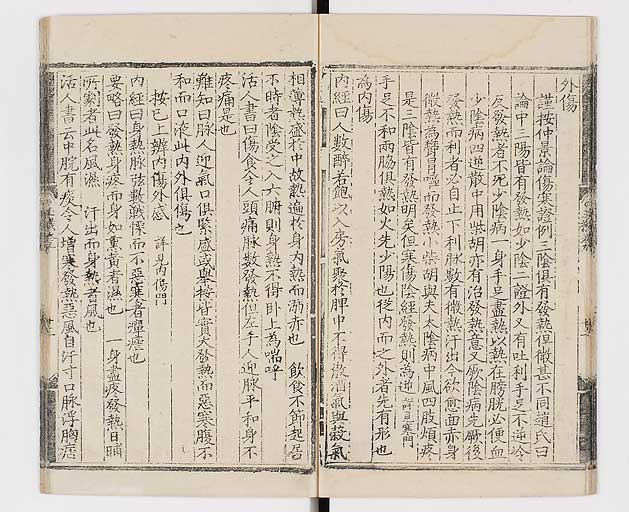 外傷
謹按仲景論傷寒證例三陰俱有發熱但微甚不同趙氏曰
論中三陽皆有發熱如少陰二證外又有吐利手足不逆冷
反發熱者不死少陰病一身手足盡熱以熱在膀胱必便血
少陰病四逆散中用柴胡亦有治發熱意又厥陰病先厥後
發熱而利者必自止下利脉數有微熱汗出令欲愈面赤身
微熱為 冒 而發熱小柴胡與夫太陰病中風四肢煩疼
是三陰皆有發熱明矣但寒傷陰經發熱則為逆 詳見寒門
手足不和兩脇俱熱如火先少陽也從內而之外者先有形也
為內傷
內經曰人數醉若飽以入房氣聚於脾中不得散酒氣與穀氣
相薄熱盛於中故熱遍於身內熱而溺赤也 飲食不節起居
不時者陰受之入六腑則身熱不得卧上為喘呼
活人書曰傷食令人頭痛脉數發熱但左手人迎脉平和身不
疼痛是也
難知曰脉人迎氣口俱緊盛或舉按皆實大發熱而惡寒腹不
和而口液此內外俱傷也
按已上辨內傷外感 詳見內傷門
內經曰身熱脉弦數戰慄而不惡寒者癉瘧也
要略曰發熱身疼而身如熏黃者濕也 一身盡疼發熱日晡
所劇者此名風濕 汗出而身熱者風也
活人書云中脘有痰令人增寒發熱惡風自汗寸口脉浮胸痞